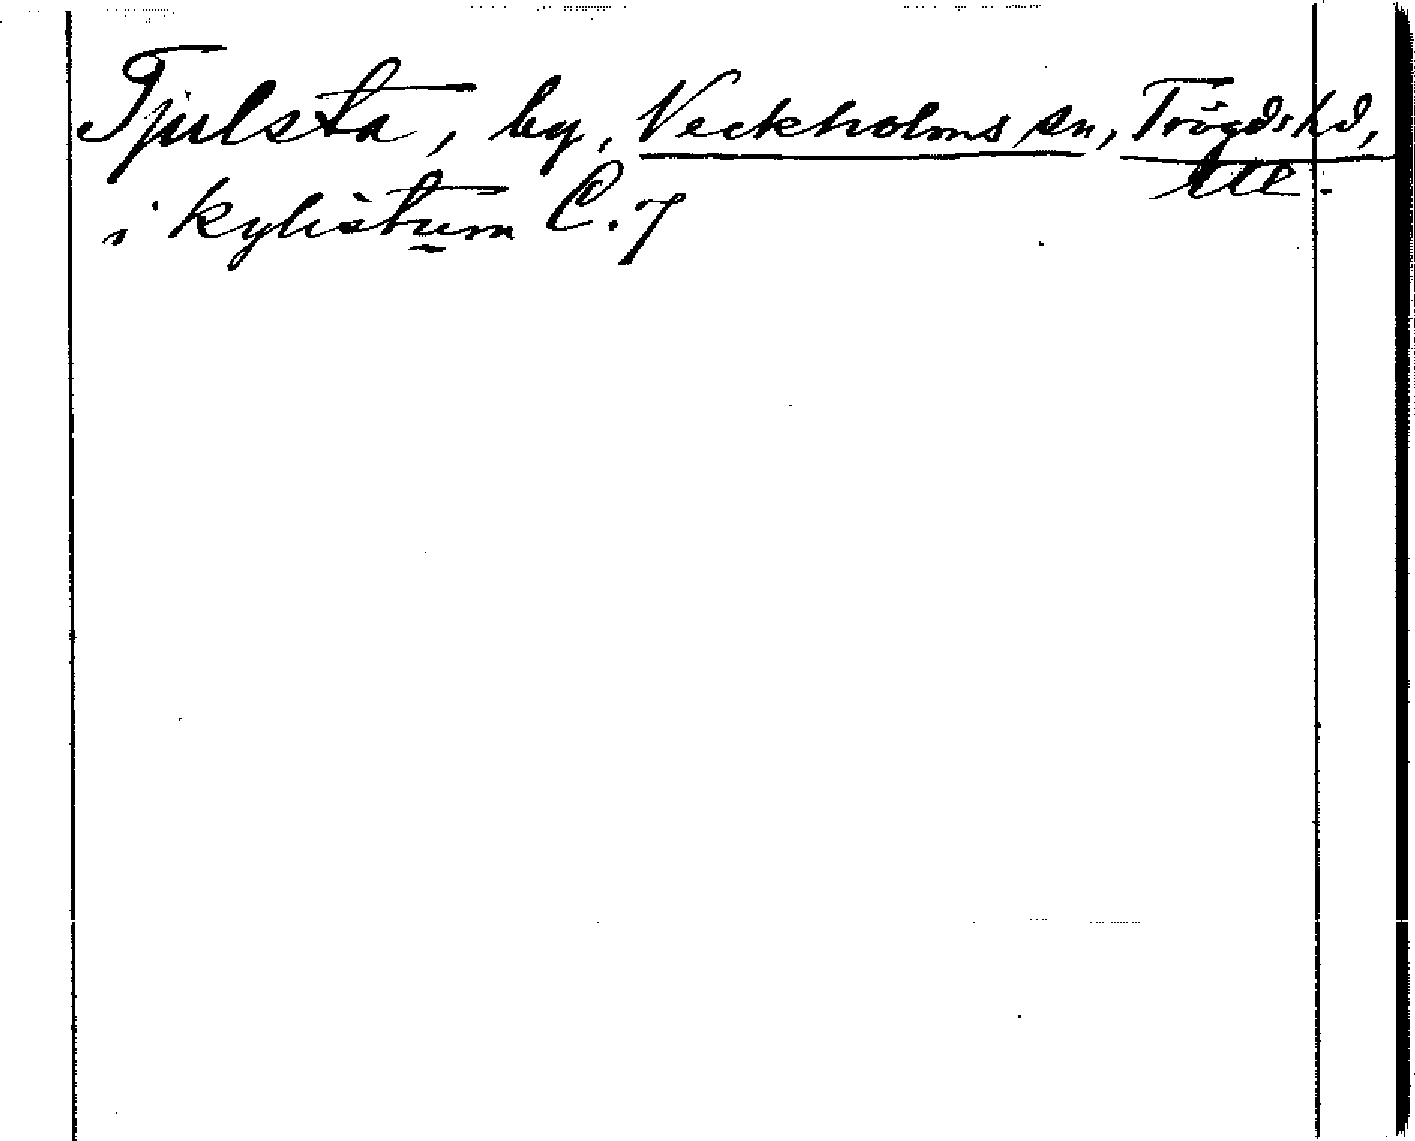 Tjulsta, by, Veckholms sn, Trögds hd,
i kylistum C. 7